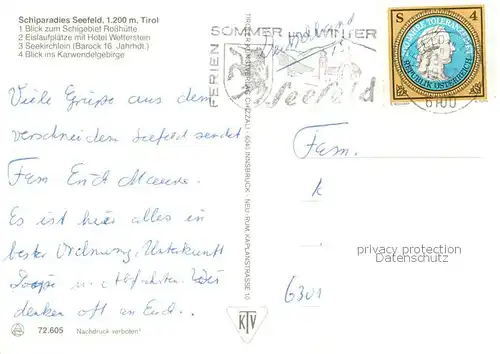 Schiparadies Seefeld, 1.200 m, Tirol
1 Blick zum Schigebiet Roßhütte
2 Eislaufplätze mit Hotel Wetterstein
3 Seekirchlein (Barock 16. Jahrhdt.)
4 Blick ins Karwendelgebirge
Viele Grüße aus dem
verschneiten Seefeld sendet
Fam. Erich
Es ist hier alles in
bester Ordnung, Unterkunft
u. Wir
denken oft an Euch.
72.605 Nachdruck verboten!
FERIEN
SOMMER und WINTER
Seefeld
S 4
REPUBLIK ÖSTERREICH
6100
CHIZZALI · 6040 INNSBRUCK · NEU-RUM, KAPLANSTRASSE 10
KTV
Fam.
6301
privacy protection
Datenschutz